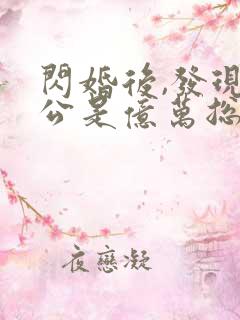 閃婚後,發現
公是億萬總
夜戀凝